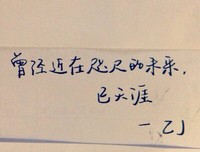 曾经近在咫尺的未来，
已天涯